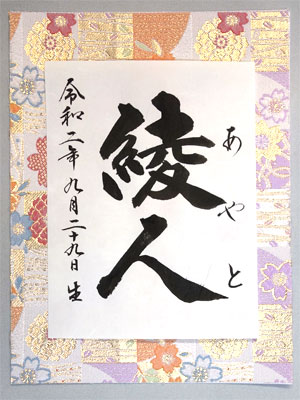 あやと
綾人
令和二年九月二十九日生